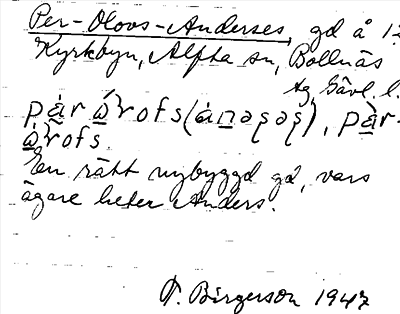 Per-Olovs-Anderses, gd å 12
Kyrkbyn, Alfta sn, Bollnäs
tg, Gävl. l.
En rätt nybyggd gd, vars
ägare heter Anders.
T. Birgerson 1947